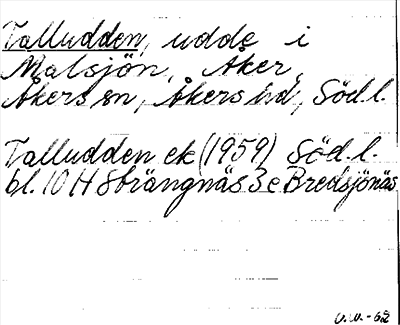 Talludden, udde i
Malsjön, Åker,
Åkers sn, Åkers hd, Söd.l.
Talludden ek (1959) Söd.l.
bl. 10 H Strängnäs 3 e Bredsjönäs
V.W.-62